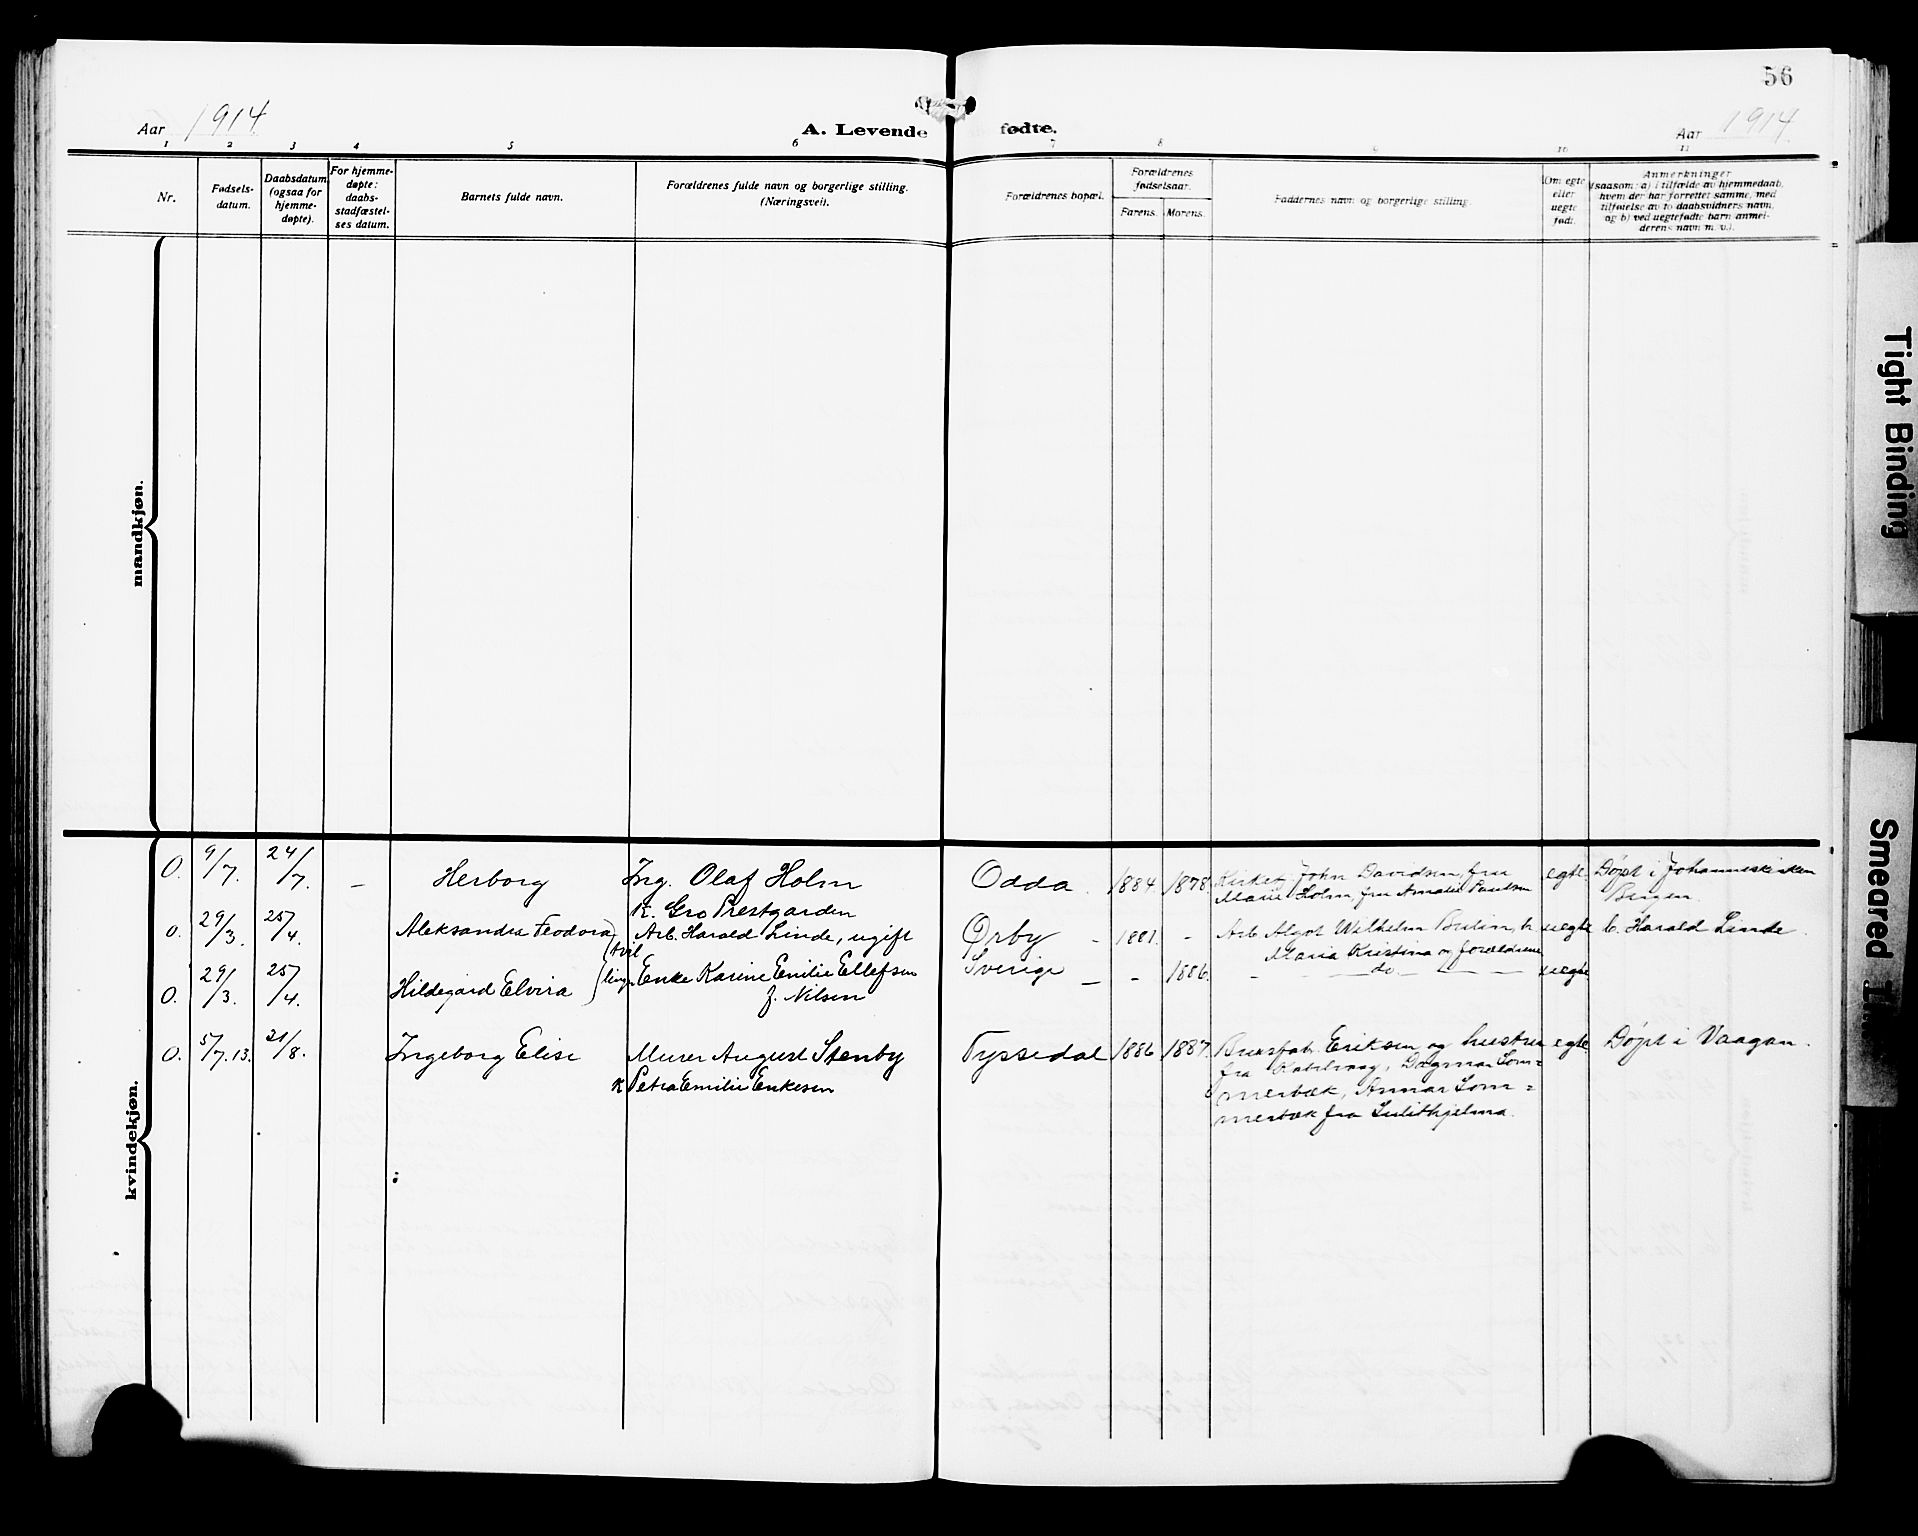 56
Aar 1914
A. Levende fødte.
Aar 1914.
1 2 3 4 5 6 7 8 9 10 11
Nr.
Fødsels-
datum.
Daabsdatum
(ogsaa for
hjemme-
døpte).
For hjemme-
døpte:
daabs-
stadfæstel-
ses datum.
Barnets fulde navn.
Forældrenes fulde navn og borgerlige stilling.
(Næringsvei).
Forældrenes bopæl.
Forældrenes
fødselsaar.
Farens. Morens.
Faddernes navn og borgerlige stilling.
Om egte
eller
uegte
født.
Anmerkninger
(saasom: a) i tilfælde av hjemmedaab,
hvem der har forrettet samme, med
tilføielse av to daabsvidners navn,
og b) ved uegtefødte barn anmel-
derens navn m. v.).
mandkjøn.
kvindekjøn.
O. 9/7. 24/7. – Herborg Ing. Olaf Holm Odda. 1884. 1878. John Davidsen, fru egte. Døpt i Johanneskirken
K. Gro Prestgarden Marie Holm, fru Amalie Paulsen Bergen.
O. 29/3. 25/4. Aleksandra Feodora Arb. Harald Linde, ugift Ørby – 1881. – Arb. Wilhelm uegte b. Harald Linde.
tvil Maria Kristina og forældrene
O. 29/3. 25/4. Hildegard Elvira ling. Enke Karine Emilie Ellefsen Sverige – – 1886. – do – uegte
f. Nilsen
O. 5/7.13. 21/8. Ingeborg Elise Murer August Stenby Tyssedal 1886 1887. Eriksen og hustru egte Døpt i Vaagan.
K Petra Emilie Enkesen fra Dagmar Som=
merbæk, Annar Som=
merbæk fra Sulithjelma.
Tight Binding
Smeared